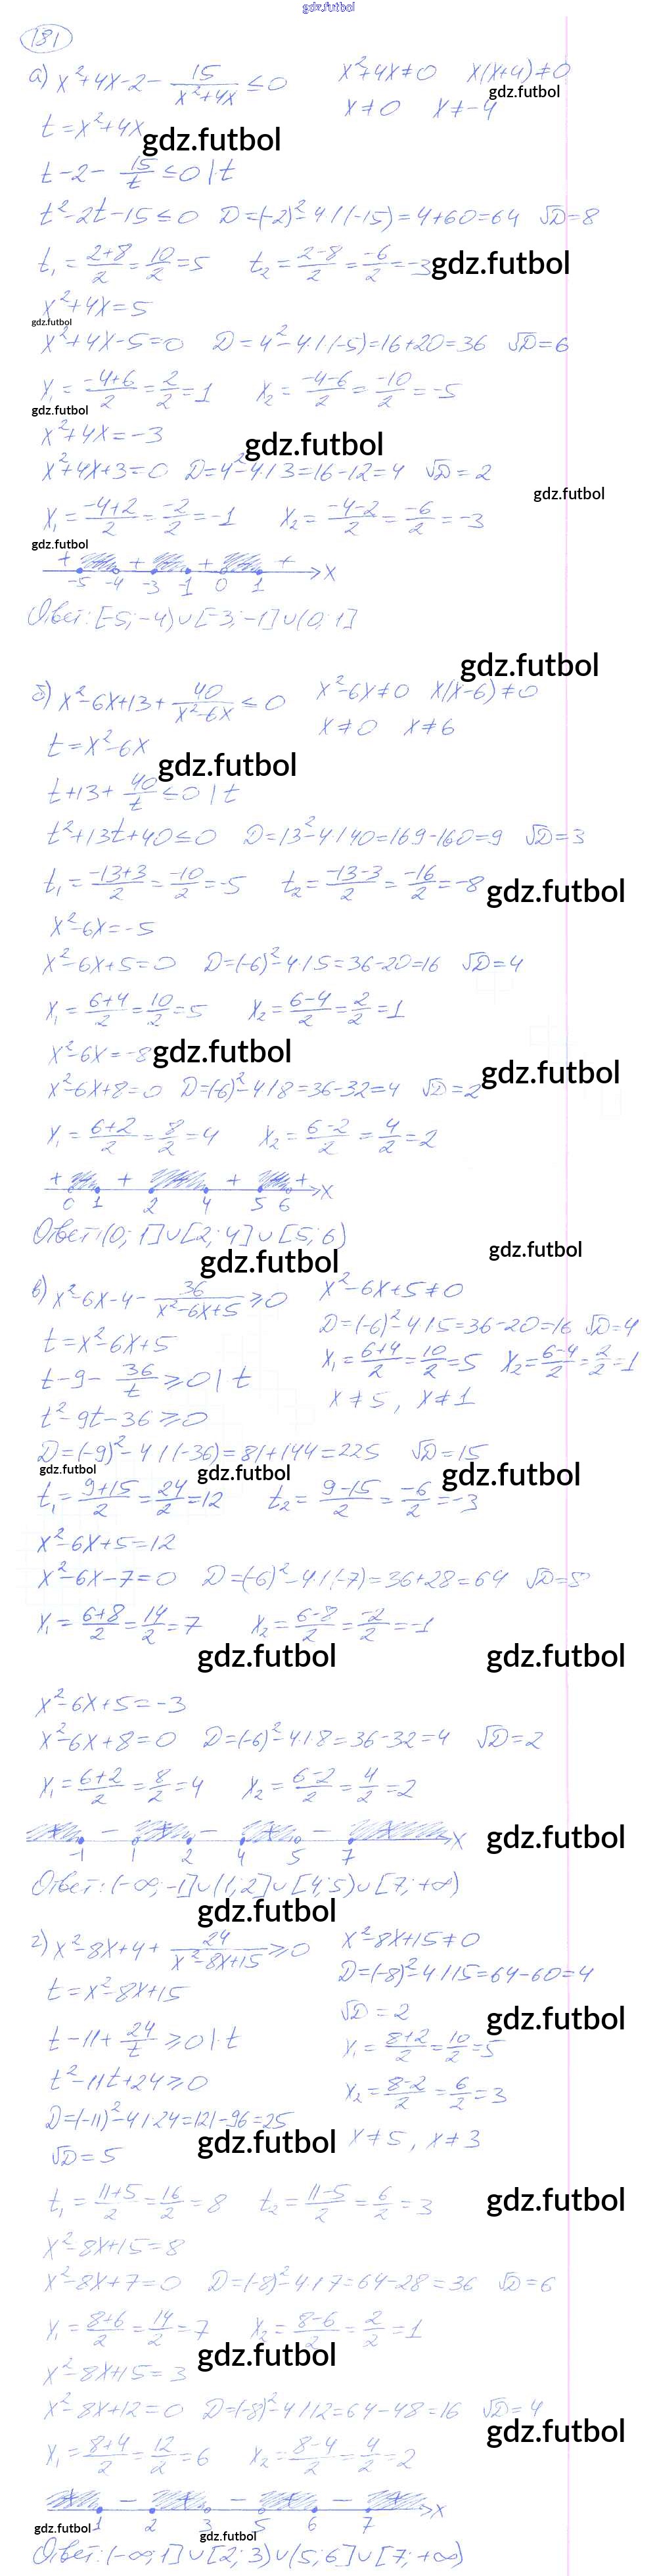 gdz.futbol
181
а) x²+4x-2- 15/(x²+4x) ≤0 x²+4x≠0 x(x+4)≠0
gdz.futbol
x≠0 x≠-4
t=x²+4x
gdz.futbol
t-2- 15/t ≤0 | t
t²-2t-15≤0 D=(-2)²-4·1·(-15)=4+60=64 √D=8
t₁= (2+8)/2 = 10/2 =5 t₂= (2-8)/2 = -6/2 =-3
gdz.futbol
x²+4x=5
gdz.futbol
x²+4x-5=0 D=4²-4·1·(-5)=16+20=36 √D=6
x₁= (-4+6)/2 = 2/2 =1 x₂= (-4-6)/2 = -10/2 =-5
gdz.futbol
x²+4x=-3
gdz.futbol
x²+4x+3=0 D=4²-4·1·3=16-12=4 √D=2
gdz.futbol
x₁= (-4+2)/2 = -2/2 =-1 x₂= (-4-2)/2 = -6/2 =-3
gdz.futbol
+ + + +
-5 -4 -3 -1 0 1 x
Ответ: [-5;-4)∪[-3;-1]∪(0;1]
gdz.futbol
б) x²-6x+13+ 40/(x²-6x) ≤0 x²-6x≠0 x(x-6)≠0
x≠0 x≠6
t=x²-6x
gdz.futbol
t+13+ 40/t ≤0 | t
t²+13t+40≤0 D=13²-4·1·40=169-160=9 √D=3
t₁= (-13+3)/2 = -10/2 =-5 t₂= (-13-3)/2 = -16/2 =-8
gdz.futbol
x²-6x=-5
x²-6x+5=0 D=(-6)²-4·1·5=36-20=16 √D=4
x₁= (6+4)/2 = 10/2 =5 x₂= (6-4)/2 = 2/2 =1
x²-6x=-8
gdz.futbol
gdz.futbol
x²-6x+8=0 D=(-6)²-4·1·8=36-32=4 √D=2
x₁= (6+2)/2 = 8/2 =4 x₂= (6-2)/2 = 4/2 =2
+ + + +
0 1 2 4 5 6 x
Ответ: (0;1]∪[2;4]∪[5;6)
gdz.futbol
gdz.futbol
в) x²-6x-4- 36/(x²-6x+5) ≥0 x²-6x+5≠0
D=(-6)²-4·1·5=36-20=16 √D=4
t=x²-6x+5
x₁= (6+4)/2 = 10/2 =5 x₂= (6-4)/2 = 2/2 =1
t-9- 36/t ≥0 | t
x≠5, x≠1
t²-9t-36≥0
D=(-9)²-4·1·(-36)=81+144=225 √D=15
gdz.futbol
gdz.futbol
gdz.futbol
t₁= (9+15)/2 = 24/2 =12 t₂= (9-15)/2 = -6/2 =-3
x²-6x+5=12
x²-6x-7=0 D=(-6)²-4·1·(-7)=36+28=64 √D=8
x₁= (6+8)/2 = 14/2 =7 x₂= (6-8)/2 = -2/2 =-1
gdz.futbol
gdz.futbol
x²-6x+5=-3
x²-6x+8=0 D=(-6)²-4·1·8=36-32=4 √D=2
x₁= (6+2)/2 = 8/2 =4 x₂= (6-2)/2 = 4/2 =2
+ - + - + - +
-1 1 2 4 5 7 x
gdz.futbol
Ответ: (-∞;-1]∪(1;2]∪[4;5)∪[7;+∞)
gdz.futbol
г) x²-8x+4+ 24/(x²-8x+15) ≥0 x²-8x+15≠0
D=(-8)²-4·1·15=64-60=4
t=x²-8x+15
√D=2
gdz.futbol
t-11+ 24/t ≥0 |·t
x₁= (8+2)/2 = 10/2 =5
t²-11t+24≥0
x₂= (8-2)/2 = 6/2 =3
D=(-11)²-4·1·24=121-96=25
gdz.futbol
x≠5, x≠3
√D=5
t₁= (11+5)/2 = 16/2 =8 t₂= (11-5)/2 = 6/2 =3
gdz.futbol
x²-8x+15=8
x²-8x+7=0 D=(-8)²-4·1·7=64-28=36 √D=6
x₁= (8+6)/2 = 14/2 =7 x₂= (8-6)/2 = 2/2 =1
gdz.futbol
x²-8x+15=3
x²-8x+12=0 D=(-8)²-4·1·12=64-48=16 √D=4
gdz.futbol
x₁= (8+4)/2 = 12/2 =6 x₂= (8-4)/2 = 4/2 =2
+ - + - + - +
1 2 3 5 6 7 x
gdz.futbol
gdz.futbol
Ответ: (-∞;1]∪[2;3)∪(5;6]∪[7;+∞)